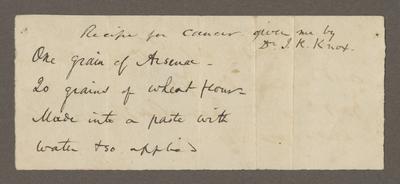 Recipe for cancer given me by
Dr. J. K. Knox.
One grain of Arsenic -
20 grains of wheat flour -
Made into a paste with
water & so applied